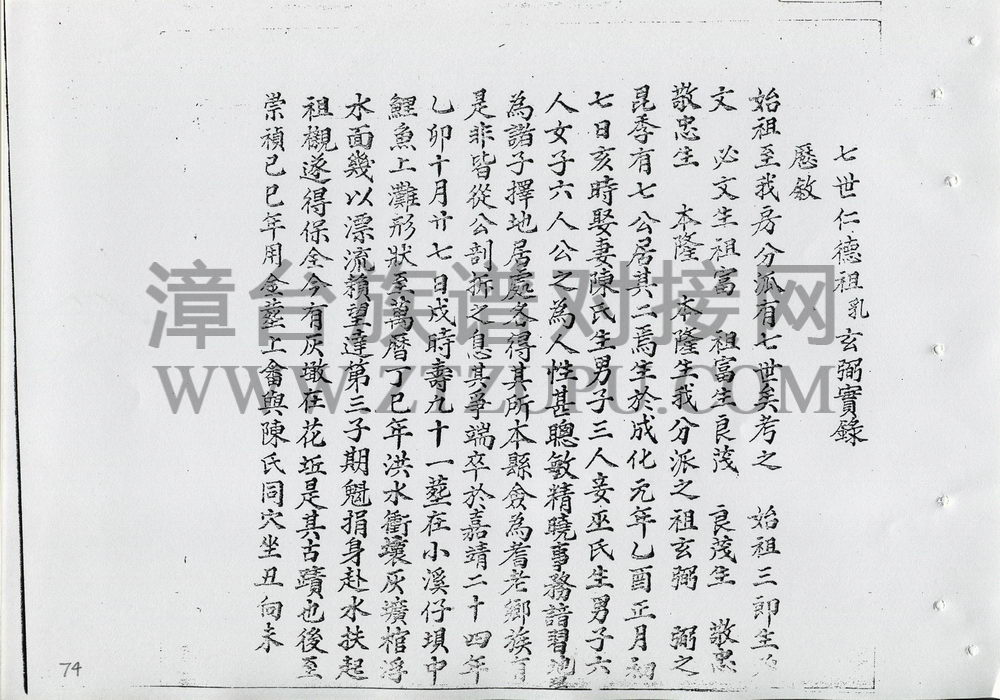 七世仁德祖乳玄弼實錄
歷敘
始祖至我房分派有七世矣考之 始祖三郎生
文 必文生祖富 祖富生良茂 良茂生 敬忠
敬忠生 本隆 本隆生我分派之祖玄弼 弼之
昆季有七公居其二焉生於成化元年乙酉正月初
七日亥時娶妻陳氏生男子三人妾巫氏生男子六
人女子六人公之為人性甚聰敏精曉事務諳習地
為諸子擇地居處各得其所本縣僉為耆老鄉族有
是非皆從公剖拆之息其爭端卒於嘉靖二十四年
乙卯十月廿七日戌時壽九十一塟在小溪仔垻中
鯉魚上灘形狀至萬曆丁巳年洪水衝壞灰壙棺浮
水面幾以漂流賴望達第三子期魁捐身赴水扶起
祖觀遂得保全今有灰墩在花坵是其古蹟也後至
崇禎己巳年用金塟上畲與陳氏同穴坐丑向未
漳台族谱对接网
WWW.ZTZUPU.COM
74